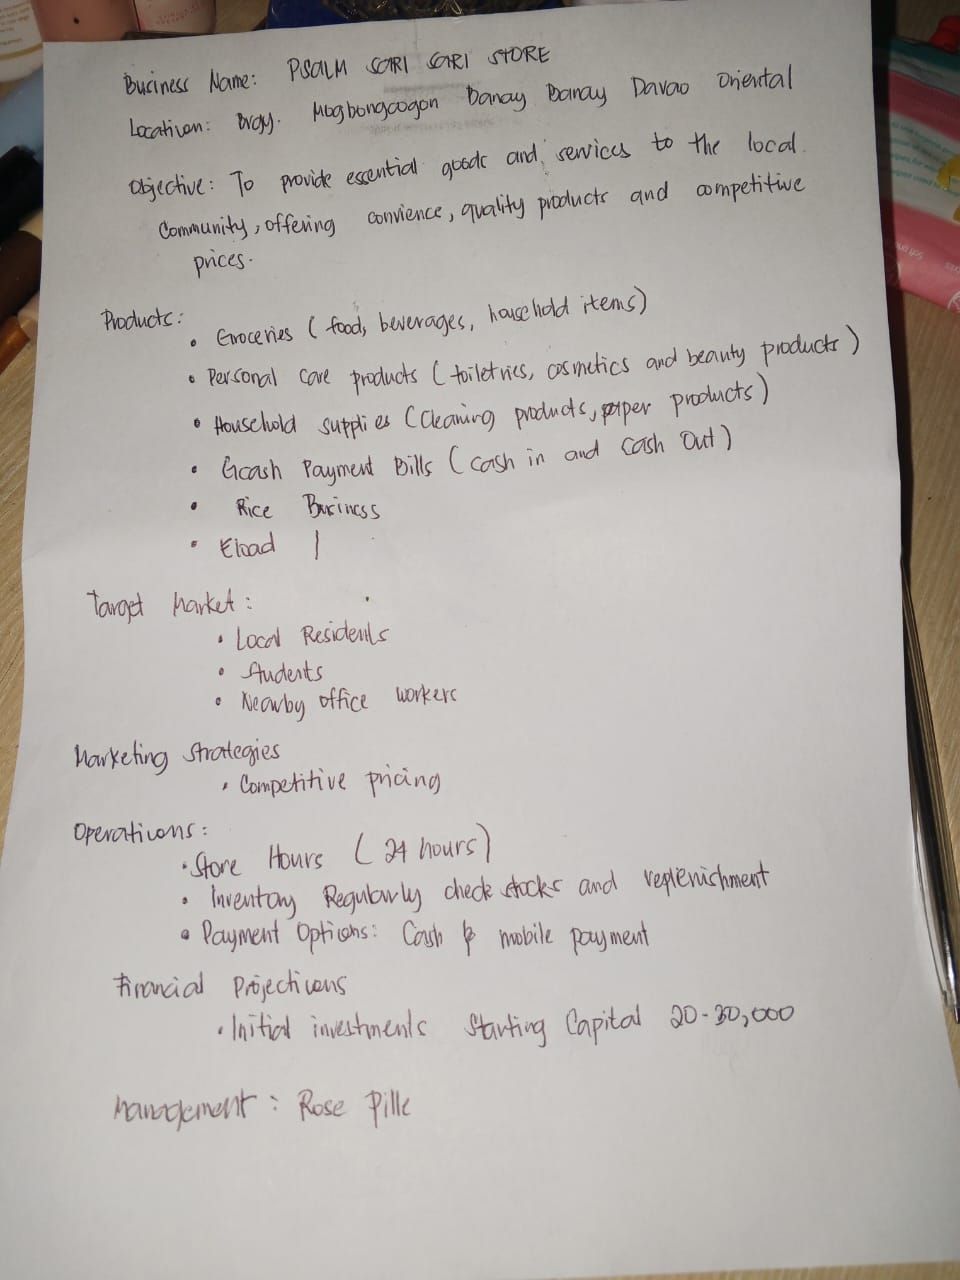 Business Name: PSALM SARI SARI STORE
Location: Brgy. Mogbongcogon Banay Banay Davao Oriental
Objective: To provide essential goods and services to the local
Community, offering convience, quality products and competitive
prices.
Products:
• Groceries (food, beverages, household items)
• Personal care products (toiletries, cosmetics and beauty products)
• Household supplies (Cleaning products, paper products)
• Gcash Payment Bills (cash in and Cash Out)
• Rice Business
• Eload
Target Market:
• Local Residents
• Students
• Nearby office workers
Marketing Strategies
• Competitive pricing
Operations:
• Store Hours (24 hours)
• Inventory Regularly check stocks and replenishment
• Payment Options: Cash & mobile payment
Financial Projections
• Initial investments Starting Capital 20-30,000
Management: Rose Pille